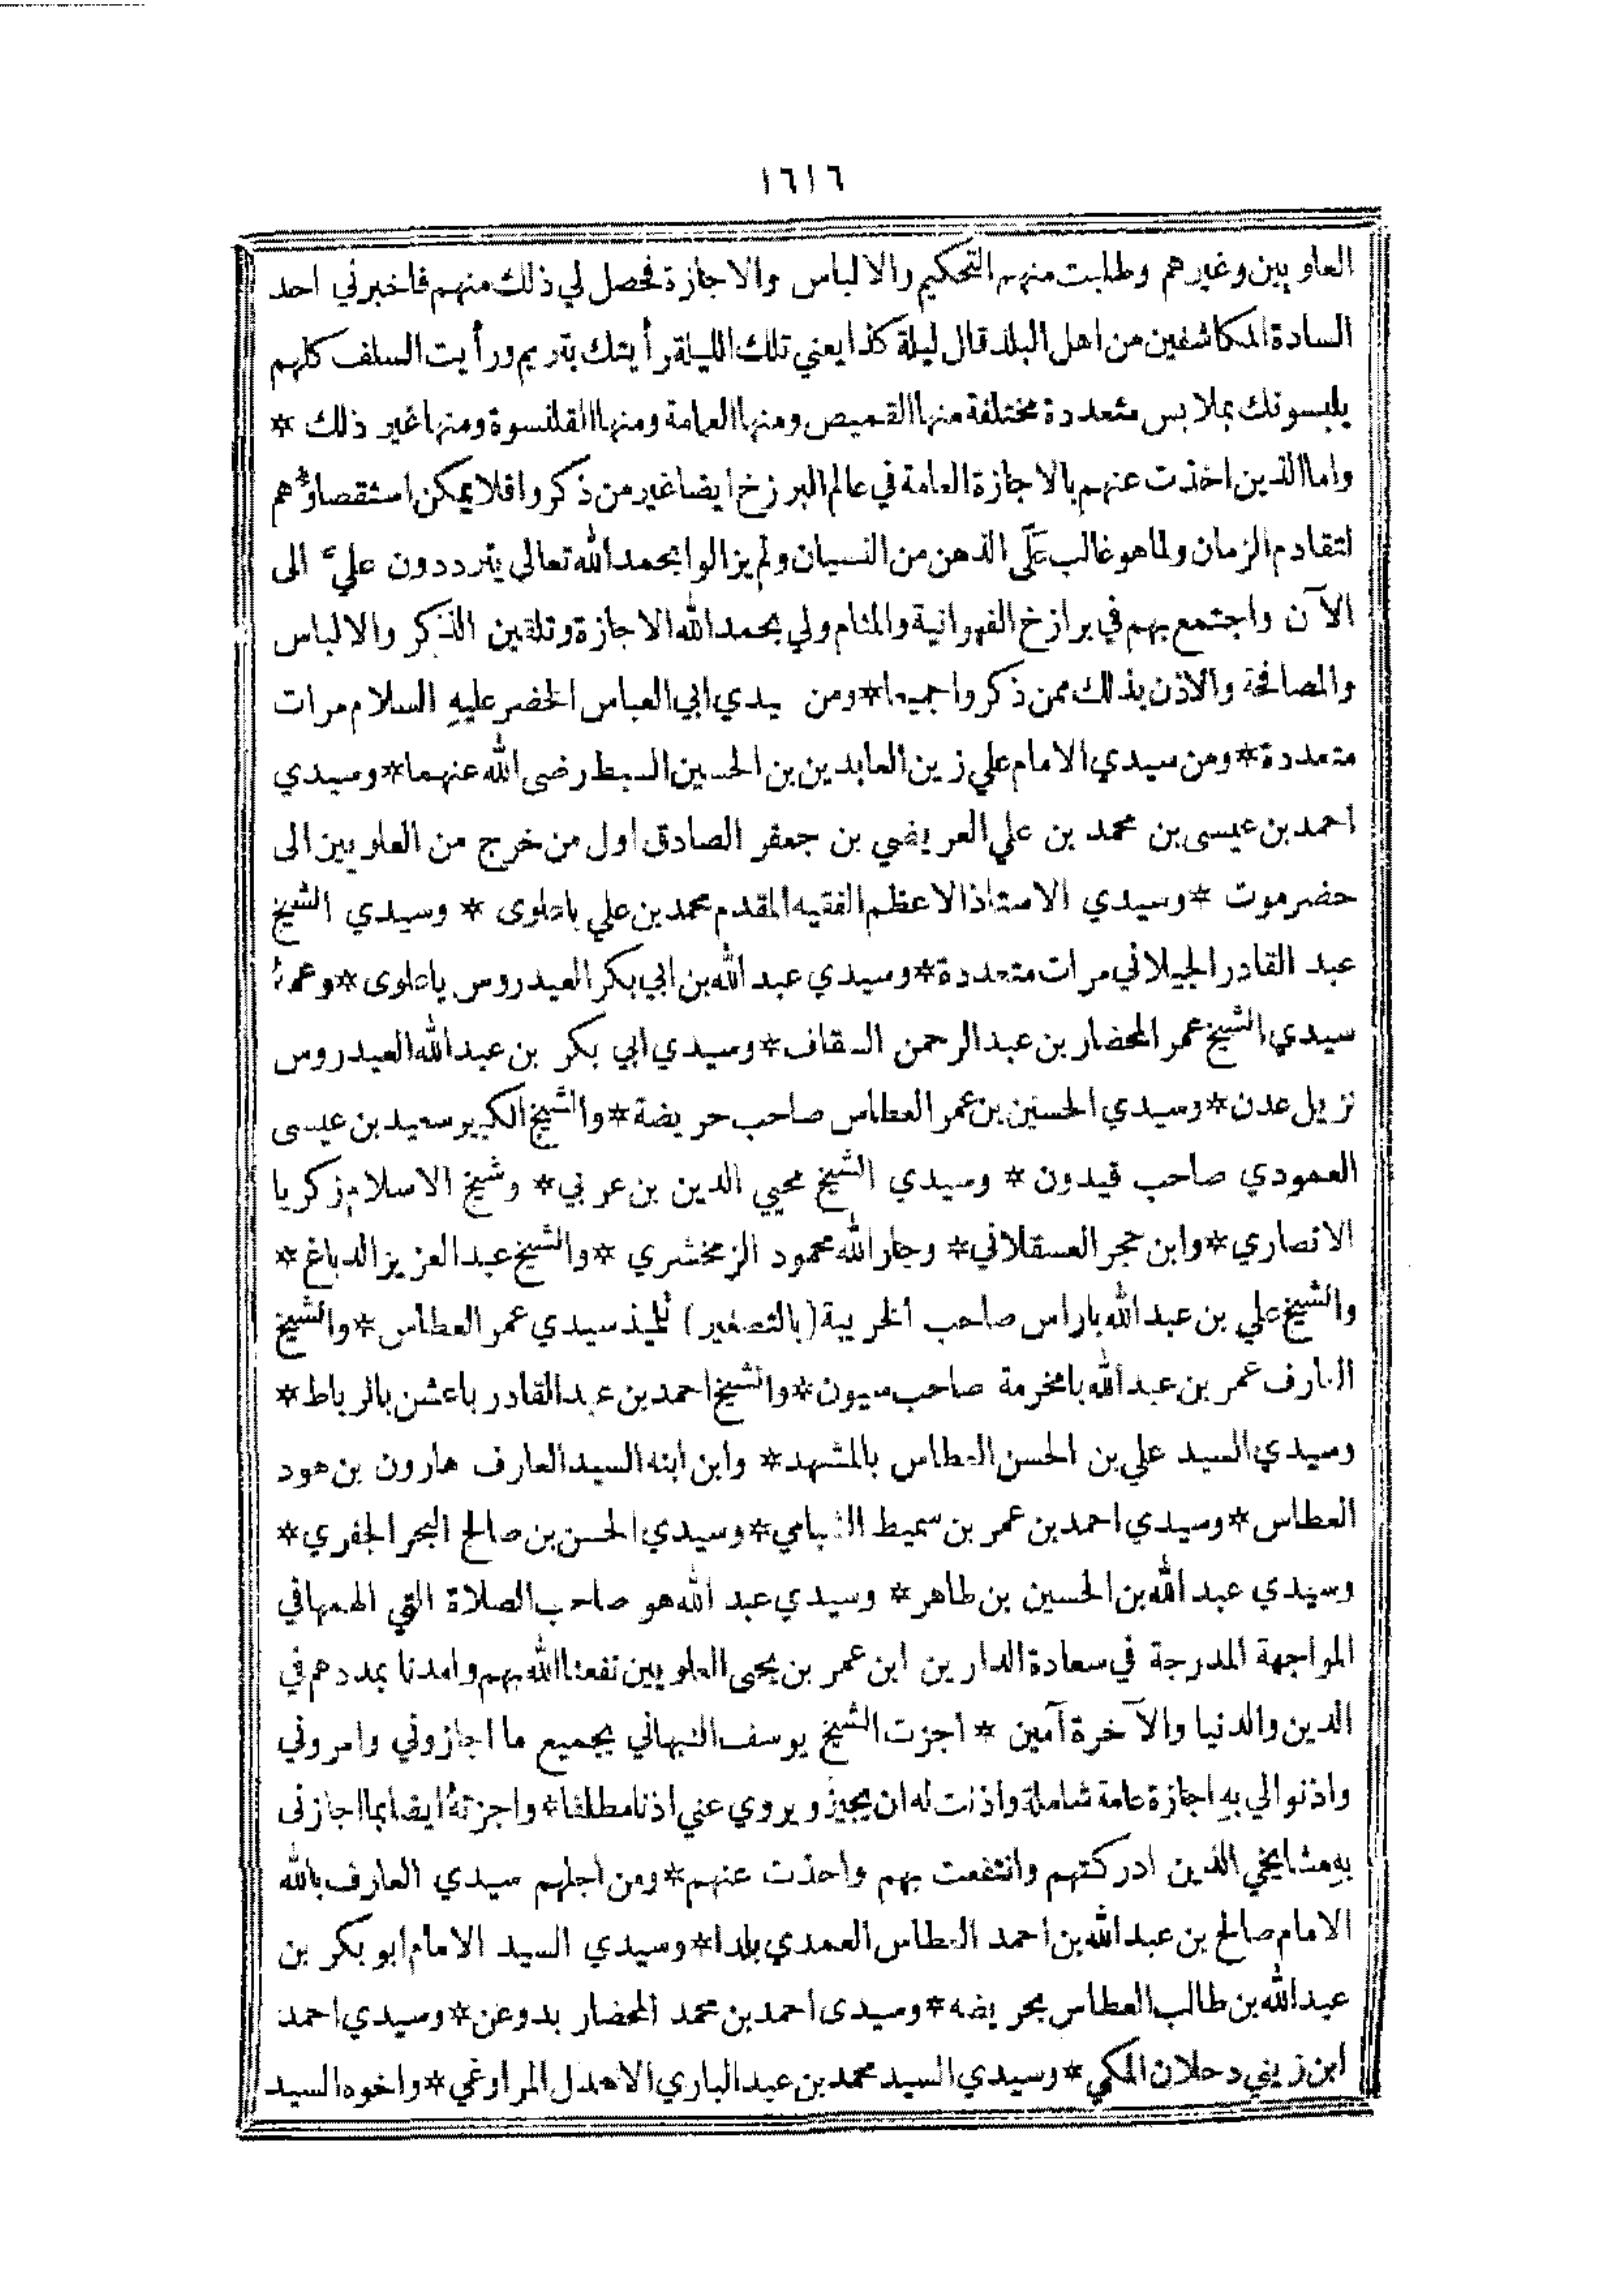 ١٦١٦
العلويين وغيرهم وطلبت منهم التحكيم والالباس والاجازة فحصل لي ذلك منهم فاخبرني احد
السادة المكاشفين من اهل البلد قال ليلة كذا يعني تلك الليلة رأيتك بتريم ورأيت السلف كلهم
يلبسونك بملابس متعددة مختلفة منها القميص ومنها العمامة ومنها القلنسوة ومنها غير ذلك *
واما الذين اخذت عنهم بالاجازة العامة في عالم البرزخ ايضا غير من ذكروا فلا يمكن استقصاؤهم
لتقادم الزمان ولما هو غالب على الذهن من النسيان ولم يزالوا بحمد الله تعالى يترددون عليّ الى
الآن واجتمع بهم في برازخ الفهوانية والمنام ولي بحمد الله الاجازة وتلقين الذكر والالباس
والمصافحة والاذن بذلك ممن ذكروا جميعا * ومن يدي ابي العباس الخضر عليهِ السلام مرات
متعددة * ومن سيدي الامام علي زين العابدين بن الحسين السبط رضى الله عنهما * وسيدي
احمد بن عيسى بن محمد بن علي العريضي بن جعفر الصادق اول من خرج من العلويين الى
حضرموت * وسيدي الاستاذ الاعظم الفقيه المقدم محمد بن علي باعلوى * وسيدي الشيخ
عبد القادر الجيلاني مرات متعددة * وسيدي عبد الله بن ابي بكر العيدروس باعلوى * وعمهُ
سيدي الشيخ عمر المحضار بن عبد الرحمن السقاف * وسيدي ابي بكر بن عبد الله العيدروس
نزيل عدن * وسيدي الحسين بن عمر العطاس صاحب حريضة * والشيخ الكبير سعيد بن عيسى
العمودي صاحب قيدون * وسيدي الشيخ محيي الدين بن عربي * وشيخ الاسلام زكريا
الانصاري * وابن حجر العسقلاني * وجار الله محمود الزمخشري * والشيخ عبد العزيز الدباغ *
والشيخ علي بن عبد الله باراس صاحب الخريبة (بالتصغير) تلميذ سيدي عمر العطاس * والشيخ
العارف عمر بن عبد الله بامخرمة صاحب سيون * والشيخ احمد بن عبد القادر باعشن بالرباط *
وسيدي السيد علي بن الحسن العطاس بالمشهد * وابن ابنه السيد العارف هارون بن هود
العطاس * وسيدي احمد بن عمر بن سميط الشبامي * وسيدي الحسن بن صالح البحر الجفري *
وسيدي عبد الله بن الحسين بن طاهر * وسيدي عبد الله هو صاحب الصلاة التي الهمها في
المواجهة المدرجة في سعادة الدارين ابن عمر بن يحيى العلويين نفعنا الله بهم وامدنا بمددهم في
الدين والدنيا والآخرة آمين * اجزت الشيخ يوسف النبهاني بجميع ما اجازوني وامروني
واذنوا لي بهِ اجازة عامة شاملة واذنت له ان يجيز ويروي عني اذنا مطلقا * واجزتهُ ايضا بما اجازنى
بهِ مشايخي الذين ادركتهم وانتفعت بهم واخذت عنهم * ومن اجلهم سيدي العارف بالله
الامام صالح بن عبد الله بن احمد العطاس العمدي بلدا * وسيدي السيد الامام ابو بكر بن
عبد الله بن طالب العطاس بحريضه * وسيدى احمد بن محمد المحضار بدوعن * وسيدي احمد
ابن زيني دحلان المكي * وسيدي السيد محمد بن عبد الباري الاهدل المراوغي * واخوه السيد